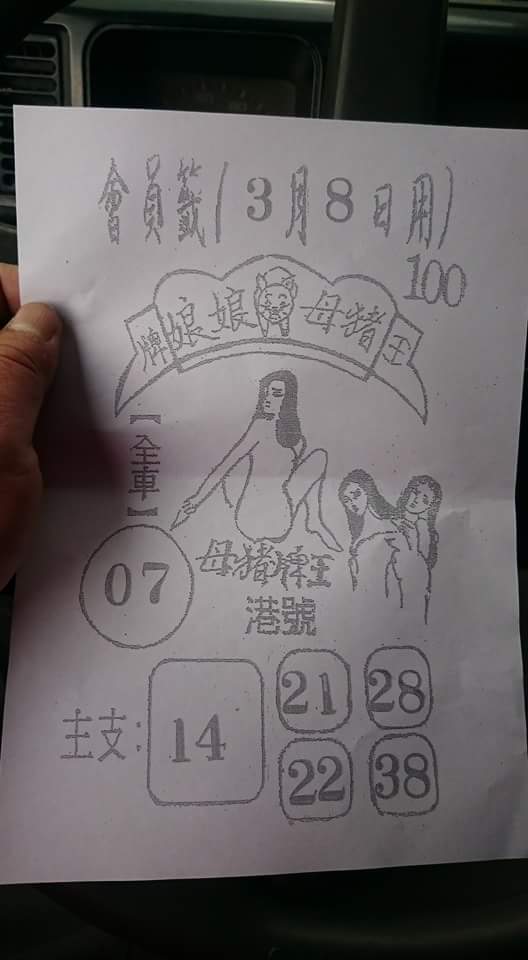 會員籤(3月8日用)
100
牌娘娘母猪王
【全車】
07
母猪牌王
港號
主支:
14
21 28
22 38